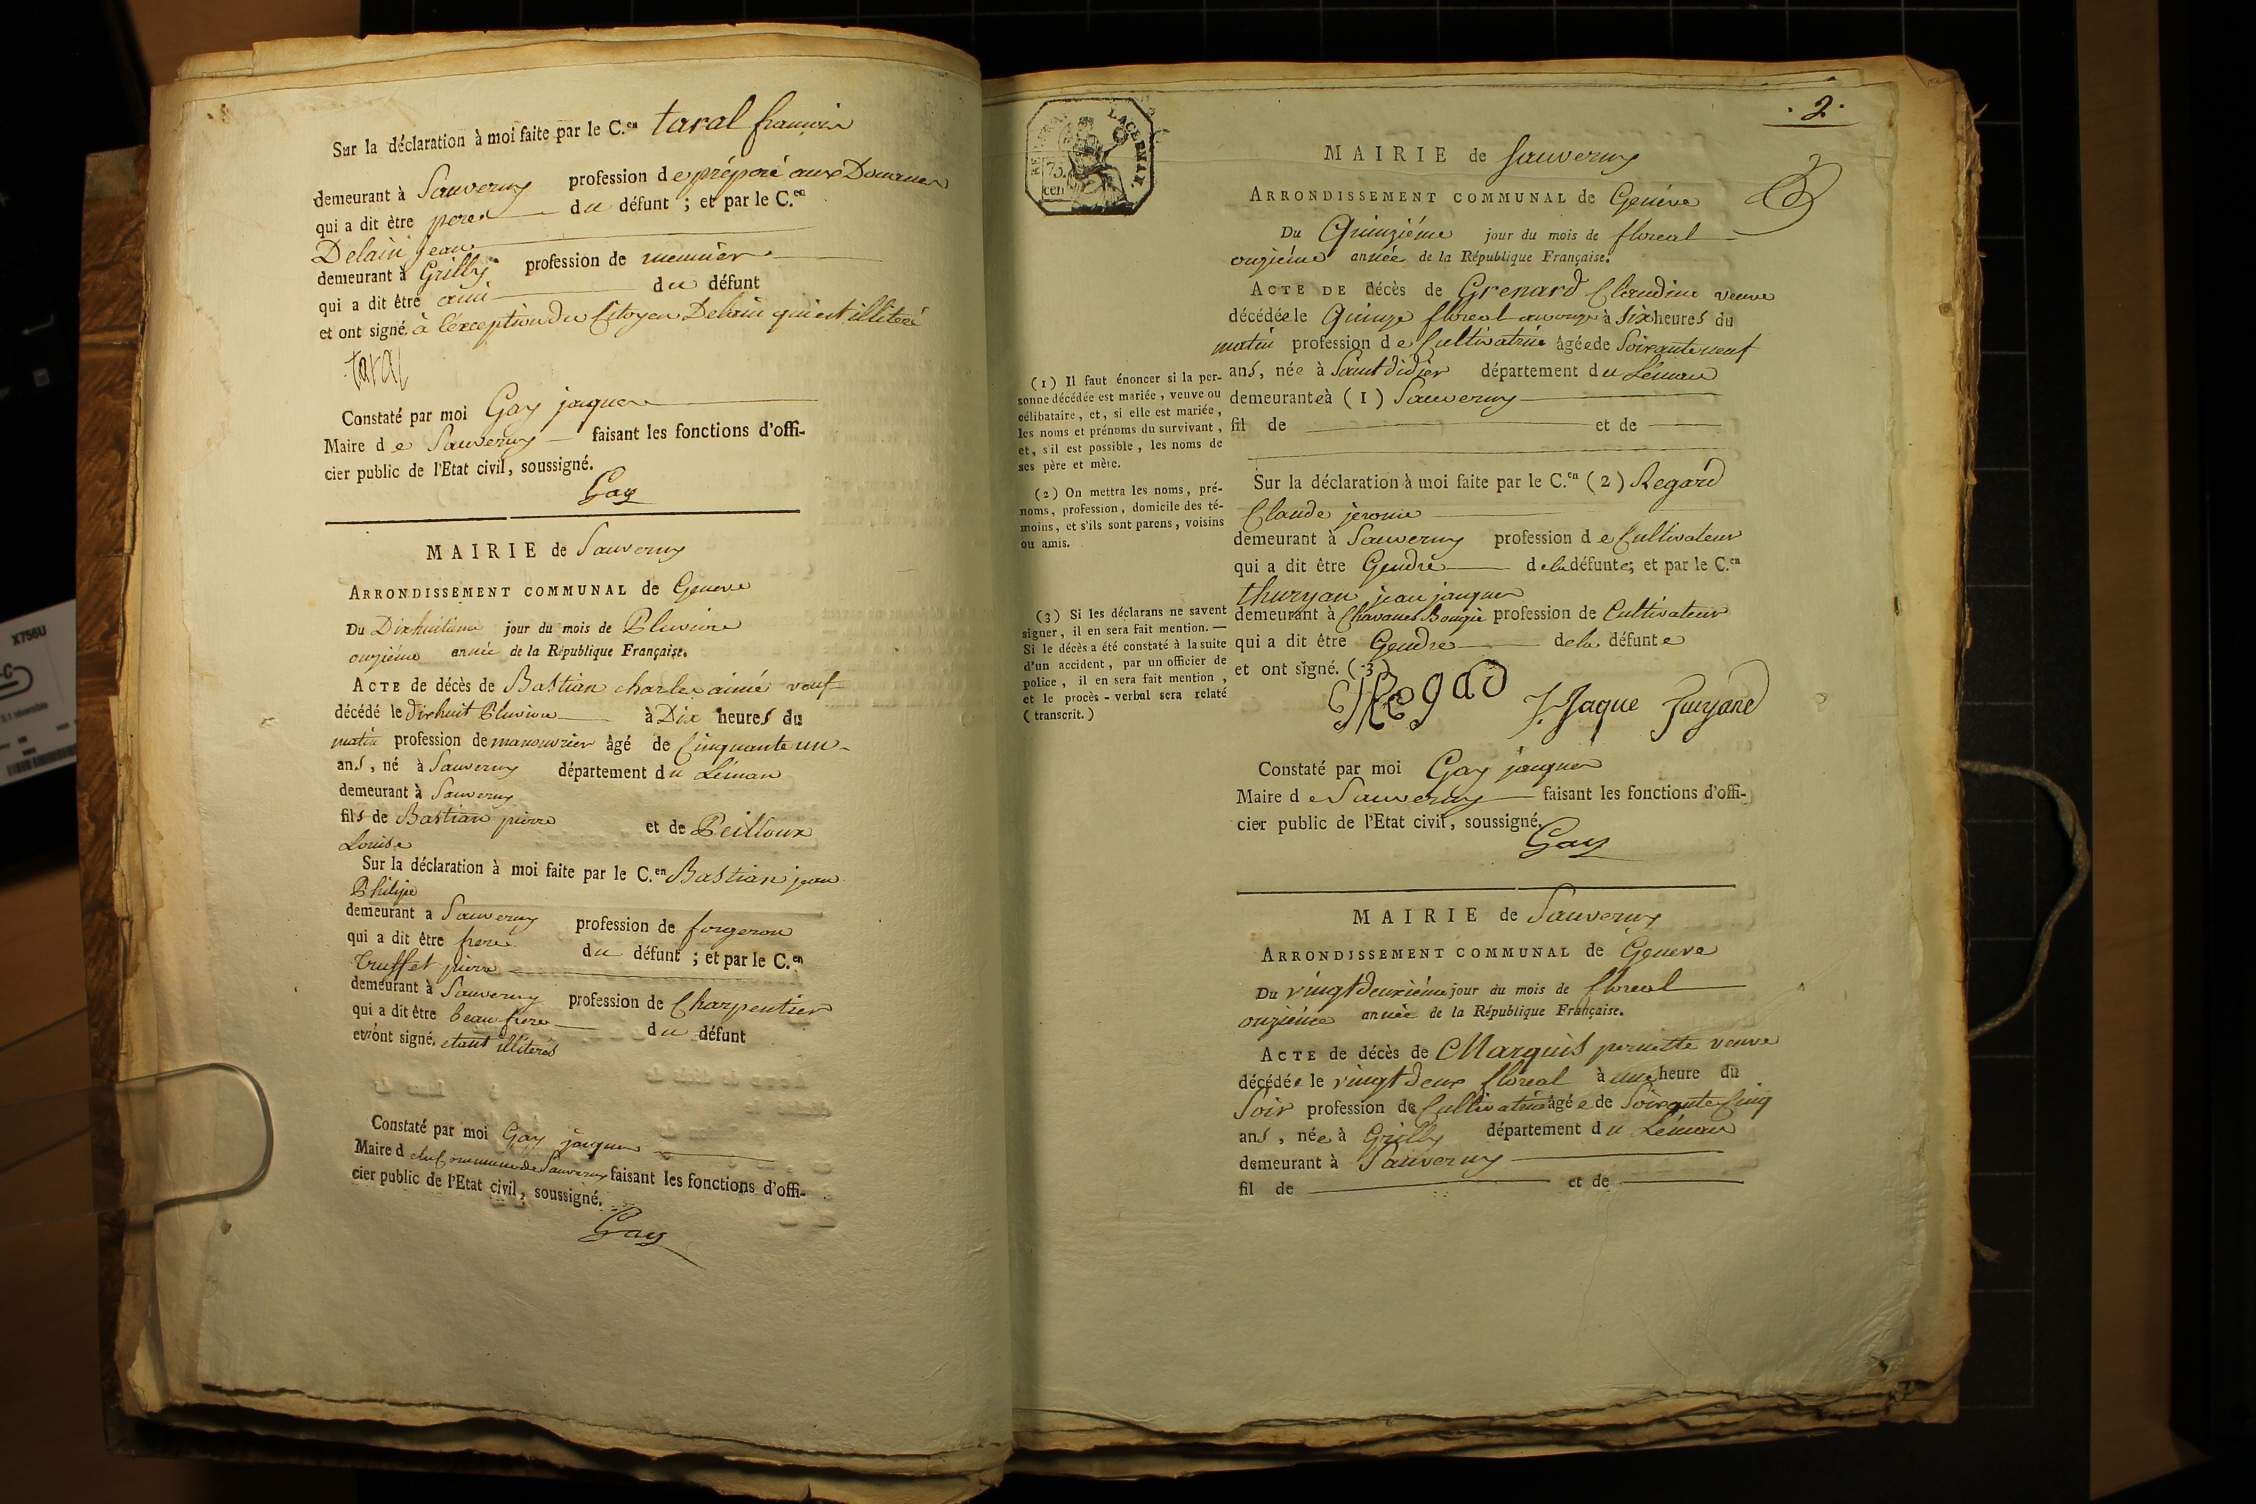 Sur la déclaration à moi faite par le C.en taral françois
demeurant à Sauverny profession de préposé aux Douanes
qui a dit être pere du défunt ; et par le C.en
Delain jean
demeurant à Grilly profession de meunier
qui a dit être ami du défunt
et ont signé. à l'exception du Citoyen Delain qui est illiteré
taral
Constaté par moi Gay jaques
Maire de Sauverny faisant les fonctions d'offi-
cier public de l'Etat civil, soussigné.
Gay
MAIRIE de Sauverny
ARRONDISSEMENT COMMUNAL de Geneve
Du Dixhuitieme jour du mois de Pluviose
onzième année de la République Française.
ACTE de décès de Bastian charles aimé veuf
décédé le dixhuit Pluviose à Dix heures du
matin profession de manouvrier âgé de Cinquante un
ans, né à Sauverny département du Léman
demeurant à Sauverny
fils de Bastian pierre et de Peilloux
Louise
Sur la déclaration à moi faite par le C.en Bastian jean
Philipe
demeurant a Sauverny profession de forgeron
qui a dit être frere du défunt ; et par le C.en
Truffet pierre
demeurant à Sauverny profession de Charpentier
qui a dit être beau frere du défunt
et ont signé. etant illiterés
Constaté par moi Gay jaques
Maire d ela Commune de Sauverny faisant les fonctions d'offi-
cier public de l'Etat civil, soussigné.
Gay
. 2.
75
cen
MAIRIE de Sauverny
ARRONDISSEMENT COMMUNAL de Genéve
Du Quinziéme jour du mois de floreal
onziéme année de la République Française.
ACTE DE décès de Grenard Claudine veuve
décédée le Quinze floreal an onze à Six heures du
matin profession de Cultivatrice âgée de Soixante neuf
ans, née à Saint didier département du Léman
demeurante à (1) Sauverny
fil de et de
Sur la déclaration à moi faite par le C.en (2) Regard
Claude jerome
demeurant à Sauverny profession de Cultivateur
qui a dit être Gendre de la défunte; et par le C.en
thuryan jean jaques
demeurant à Chavanes Bougie profession de Cultivateur
qui a dit être Gendre de la défunte
et ont signé. (3)
J. Jaque
Constaté par moi Gay jaques
Maire de Sauverny faisant les fonctions d'offi-
cier public de l'Etat civil, soussigné.
Gay
(1) Il faut énoncer si la per-
sonne décédée est mariée, veuve ou
célibataire, et, si elle est mariée,
les noms et prénoms du survivant,
et, s'il est possible, les noms de
ses père et mère.
(2) On mettra les noms, pré-
noms, profession, domicile des té-
moins, et s'ils sont parens, voisins
ou amis.
(3) Si les déclarans ne savent
signer, il en sera fait mention. —
Si le décès a été constaté à la suite
d'un accident, par un officier de
police, il en sera fait mention,
et le procès-verbal sera relaté
(transcrit.)
MAIRIE de Sauverny
ARRONDISSEMENT COMMUNAL de Geneve
Du vingtdeuxiéme jour du mois de floreal
onziéme année de la République Française.
ACTE de décès de Marquis pernette veuve
décédée le vingtdeux floreal à une heure du
Soir profession de Cultivatrice âgée de Soixante Cinq
ans, née à Grilly département du Léman
demeurant à Sauverny
fil de et de
X756U